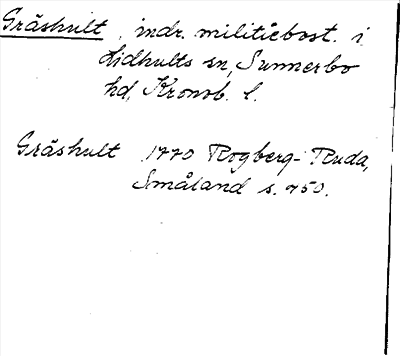 Gräshult, indr. militiebost. i
Lidhults sn, Sunnerbo
hd, Kronob. l.
Gräshult 1770 Rogberg-Ruda,
Småland s. 750.